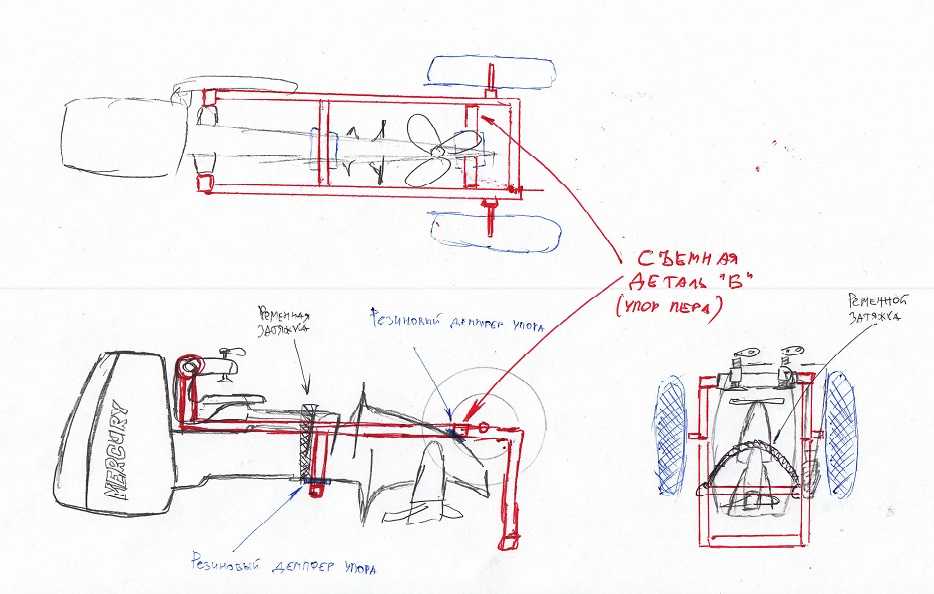 СЪЕМНАЯ
ДЕТАЛЬ "В"
(УПОР ПЕРА)
РЕМЕННАЯ
ЗАТЯЖКА
РЕЗИНОВЫЙ ДЕМПФЕР УПОРА
РЕМЕННОЙ
ЗАТЯЖКА
MERCURY
РЕЗИНОВЫЙ ДЕМПФЕР УПОРА